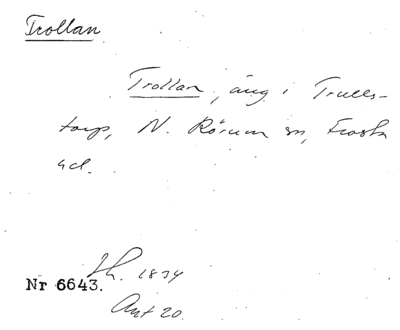 Trollan
Trollan, äng i Trulls-
torp, N. Rörum sn, Frosta
hd.
Lh. 1834
Nr 6643.
Ant 20.